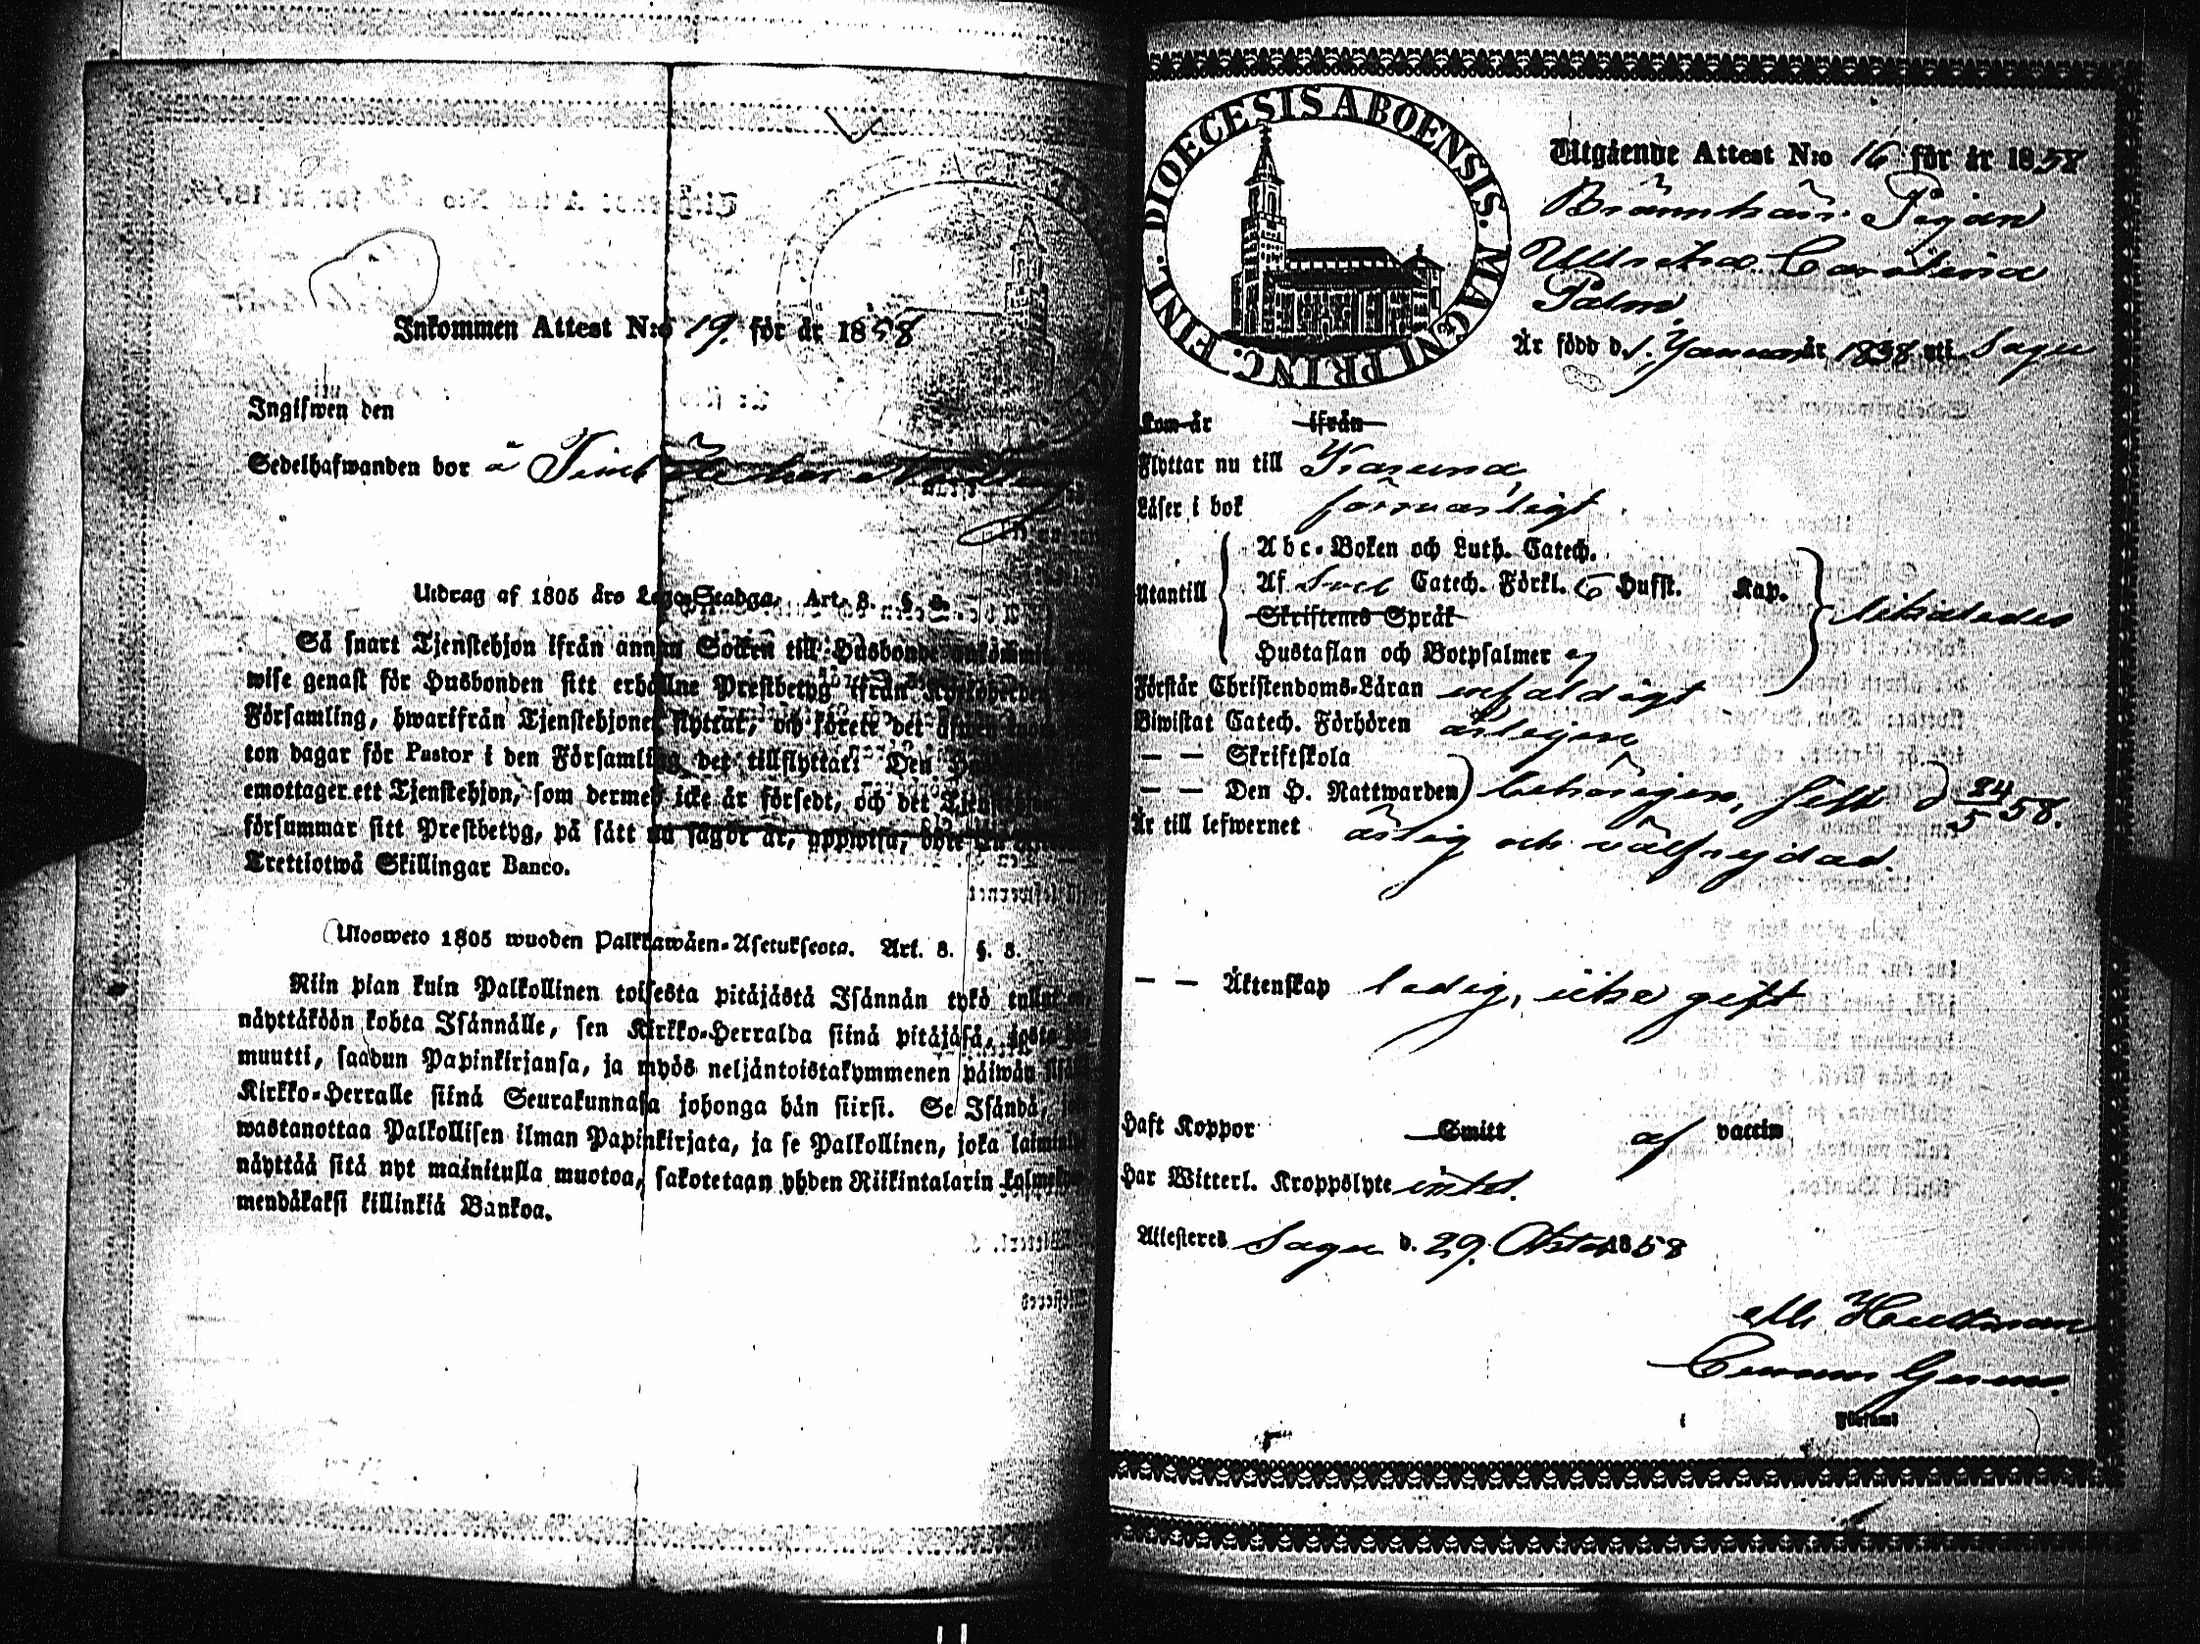 Inkommen Attest N:o 19. för år 1858
Ingifwen den
Sedelhafwanden bor å
Utdrag af 1805 års Lego-Stadga. Art. 8. §. 3.
Så snart Tjenstehjon ifrån annan Socken till Husbonde
wise genast för Husbonden sitt erhållne Prestbetyg ifrån
Församling, hwarifrån Tjenstehjonet flyttat, och förete det
ton dagar för Pastor i den Församling det tillflyttat. Den
emottager ett Tjenstehjon, som dermed icke är försedt, och det
försummar sitt Prestbetyg, på sätt nu sagdt är, uppwisa, böte
Trettiotwå Skillingar Banco.
Ulosweto 1805 wuoden Palkkawäen-Asetuksesta. Art. 8. §. 3.
Niin pian kuin Palkollinen toisesta pitäjästä Isännän tykö
näyttäköön kohta Isännälle, sen Kirkko-Herralda siinä pitäjäsä,
muutti, saadun Papinkirjansa, ja myös neljäntoistakymmenen päiwän
Kirkko-Herralle siinä Seurakunnasa johonga hän siirsi. Se Isändä,
wastanottaa Palkollisen ilman Papinkirjata, ja se Palkollinen, joka
näyttää sitä nyt mainitulla muotoa, sakotetaan yhden Riikintalarin
mendäkaksi killinkiä Bankoa.
DIOECESIS ABOENSIS. MAGNI PRINC. FINL.
Utgående Attest N:o 16 för år 1858
Pigan
Ulrika Carolina
Palm
Är född d. 1. Januari år 1838 uti Sagu
Kom år ifrån
Flyttar nu till Karuna
Läser i bok försvarligt
Utantill
Abc-Boken och Luth. Catech.
Af Sveb Catech. Förkl. 6 Hufst. Kap.
Skriftenes Språk
Hustaflan och Botpsalmer ej
likaledes
Förstår Christendoms-Läran enfaldigt
Biwistat Catech. Förhören årligen
— — Skriftskola
— — Den H. Nattwarden behörigen, sist d 24/5 58.
Är till lefwernet ärlig och välfrejdad.
— — Äktenskap ledig, icke gift
Haft Koppor Smitt af vaccin
Har Witterl. Kroppslyte intet.
Attesteres Sagu d. 29. Octob 1858
Hultman
i Församl